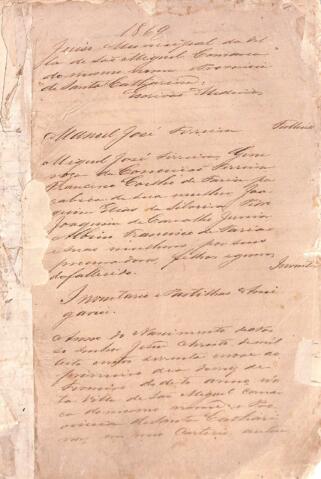 1869
Juizo Municipal da Vil
la de São Miguel Comarca
do mesmo nome Provincia
de Santa Catharina.
Escrivão Medeiros
Manoel José Ferreira Fallecido
Miguel José Ferreira,
Conceição Ferreira
Coelho de Faria por
cabeça de sua mulher, Joa
quim Dias de Silveira,
Joaquim de Carvalho Junior
Albino Francisco de Farias
suas mulheres, por seus
procuradores, filhos e genros
do fallecido. Inventr
Inventario e Partilhas Ami
gavel.
Anno do Nascimento de Nos
so Senhor Jesus Christo de mil
oito centos sessenta e nove aos
primeiro dia do mez de
Fevereiro do dito anno, nes
ta Villa de São Miguel Comar
ca do mesmo nome e Pro
vincia de Santa Cathari
na, em meu Cartorio autuei